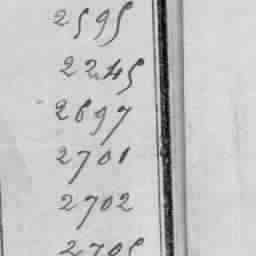 2595
2245
2697
2701
2702
2705